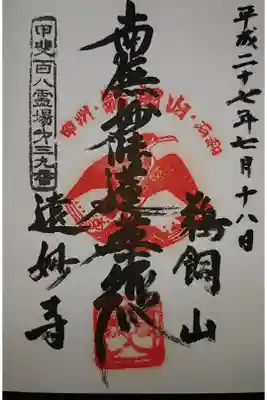 平成二十七年七月十八日
鵜飼山
南無妙法蓮華経
遠妙寺
甲斐百八霊場才三九番
甲州・鵜飼山・石和